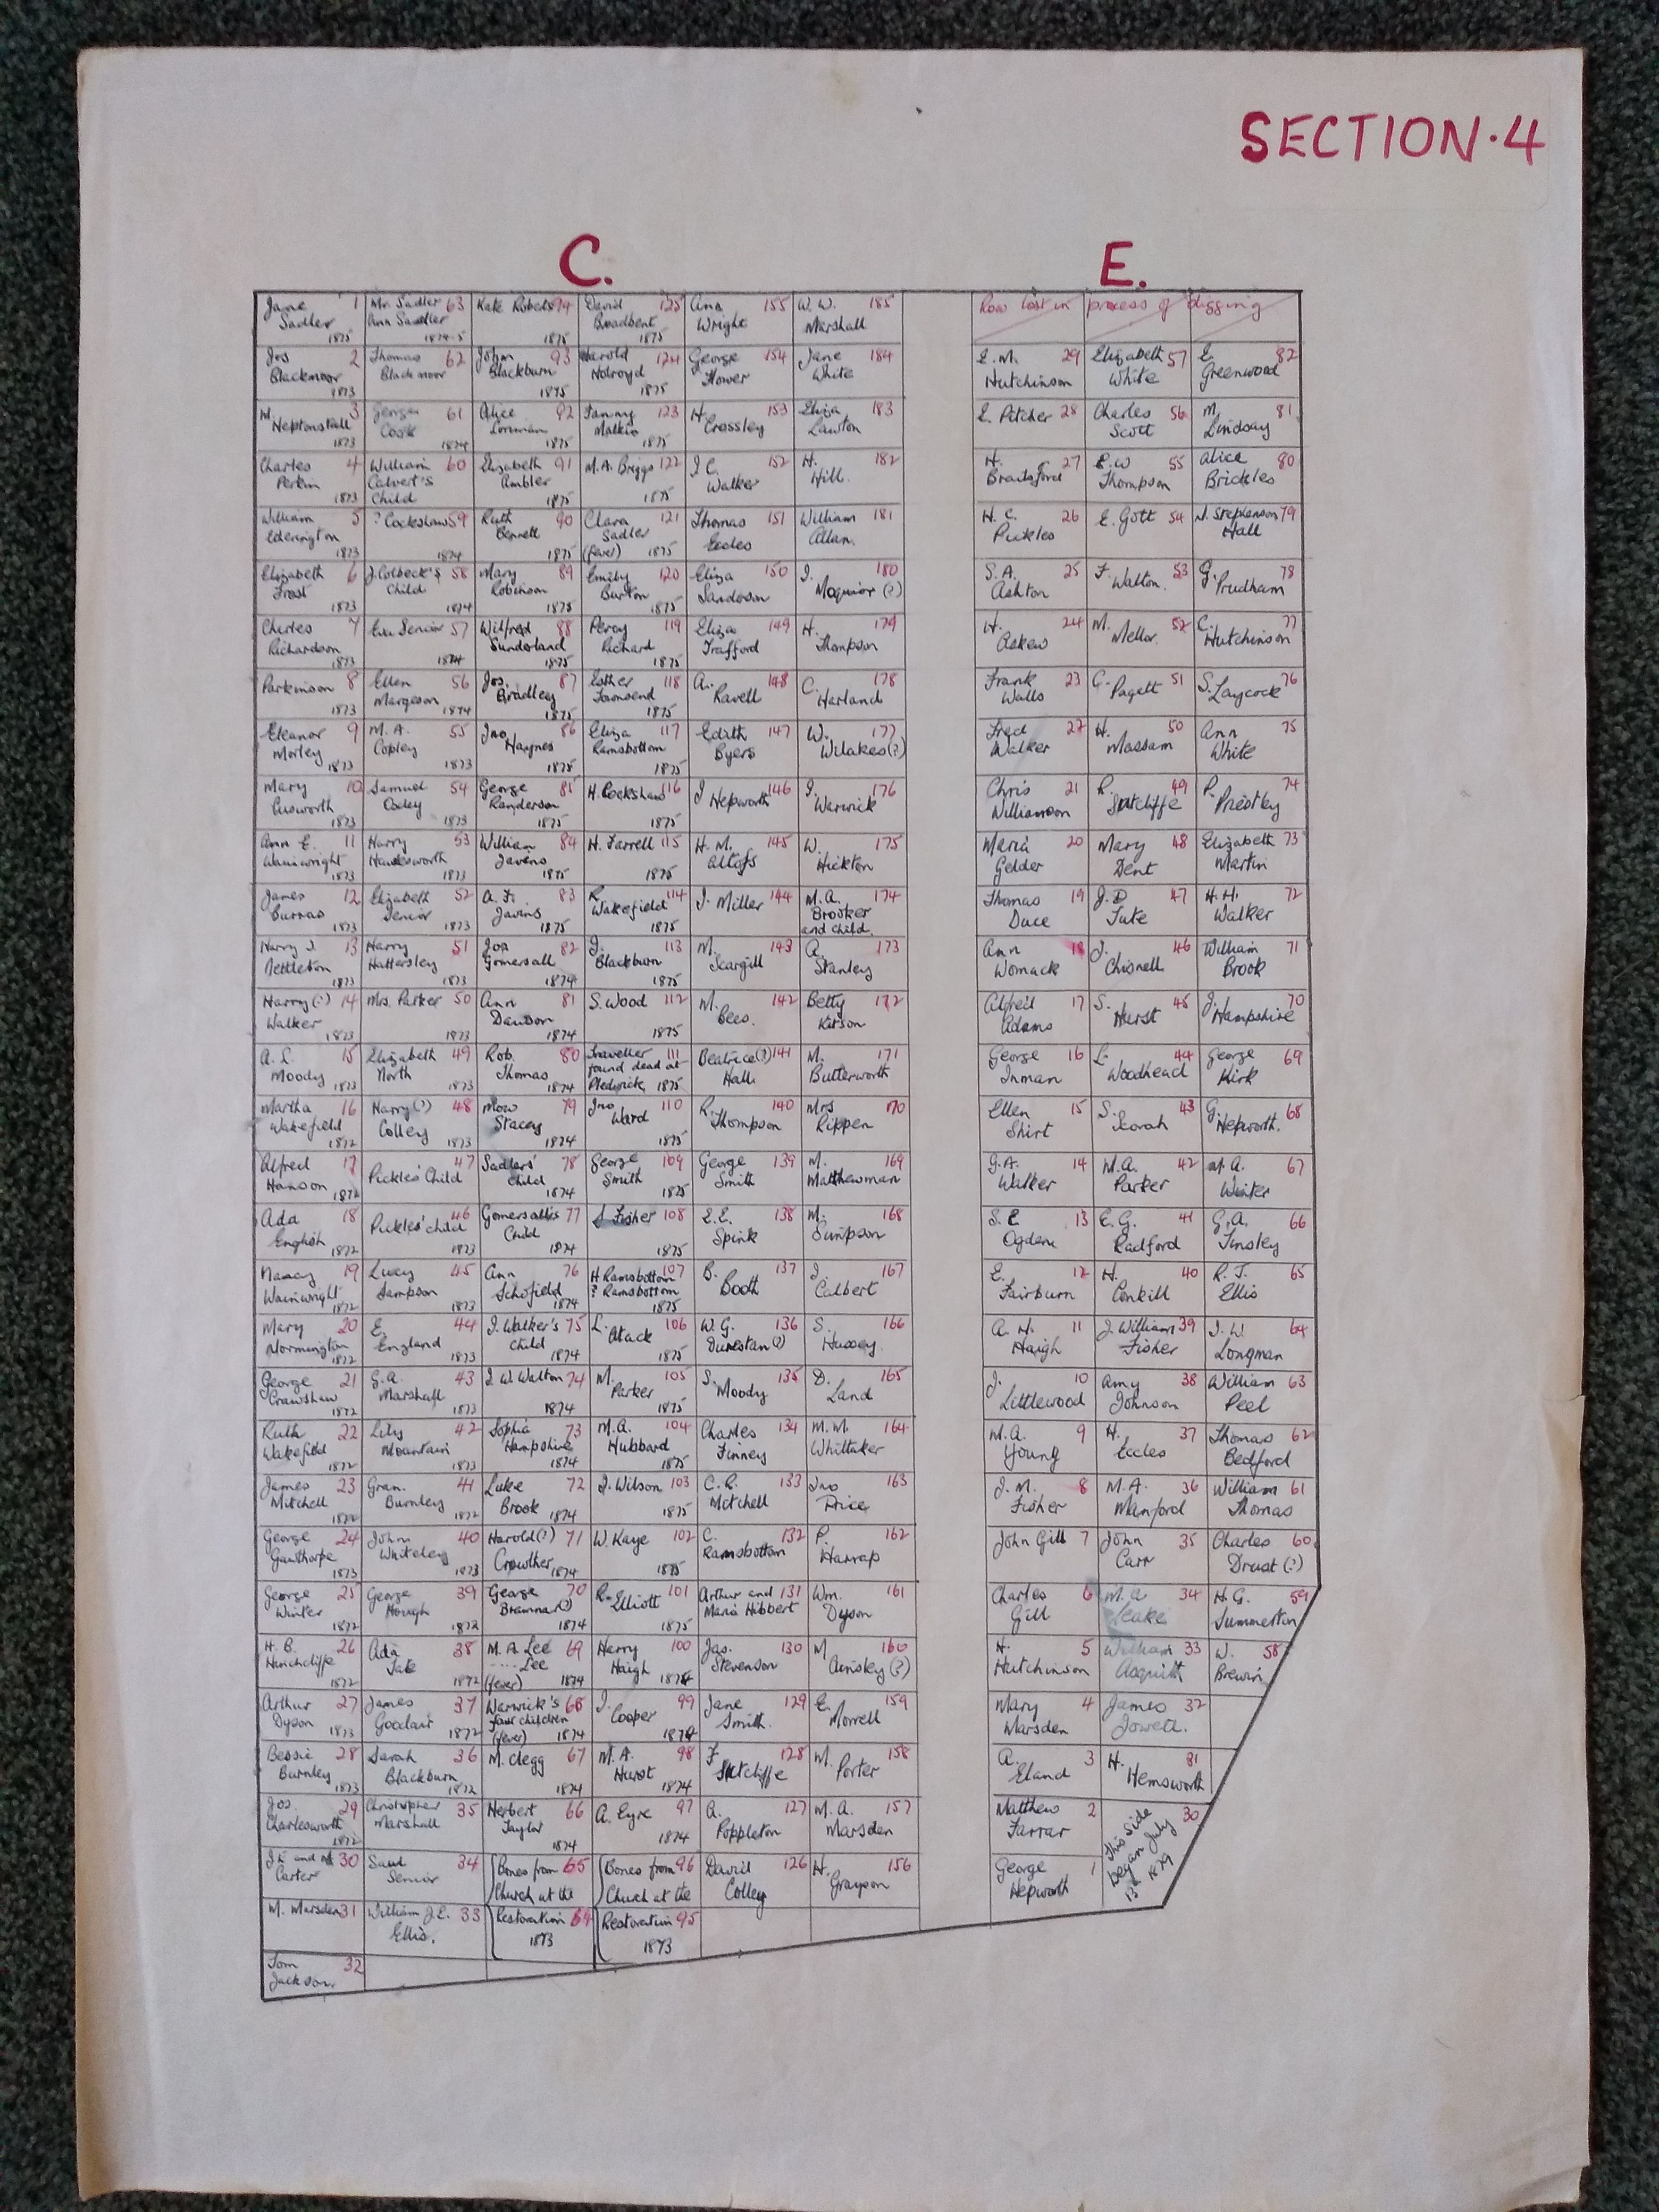 SECTION·4
C.
E.
Jane 1 Sadler 1875
Mr. Sadler 63 Ann Sadler 1874-5
Kate Roberts 94 1875
David 125 Broadbent 1875
Ann 155 Wright
W. W. 185 Marshall
Row lost in process of digging
Jos 2 Blackmoor 1873
Thomas 62 Blackmoor
John 93 Blackburn 1875
Harold 124 Holroyd 1875
George 154 Flower
Jane 184 White
E. M. 29 Hutchinson
Elizabeth 57 White
E. 82 Greenwood
3 Heptonstall 1873
George 61 Cook 1874
Alice 92 1875
Fanny 123 Malkin 1875
H. 153 Crossley
Eliza 183 Lawton
E. Pitcher 28
Charles 56 Scott
M. 81 Lindsay
Charles 4 Perkin 1873
William 60 Calvert's Child
Elizabeth 91 Ambler 1875
M.A. Briggs 122 1875
J C. 152 Walker
H. 182 Hill.
H. 27 Brailsford
E. W 55 Thompson
Alice 80 Brickles
William 5 Ederington 1873
? Cockshaw 59 1874
Ruth 90 Bennett 1875
Clara 121 Sadler (fever) 1875
Thomas 151 Eccles
William 181 Allan.
H. C. 26 Pickles
E. Gott 54
N. Stephenson 79 Hall
Elizabeth 6 Frost 1873
J. Colbeck's 58 Child 1874
Mary 89 Robinson 1875
Emily 120 Burton 1875
Eliza 150 Sanderson
I. 180 Moquior (?)
S. A. 25 Ashton
F. Walton. 53
G. 78 Prudham
Charles 7 Richardson 1873
Eva Senior 57 1874
Wilfred 88 Sunderland 1875
Percy 119 Richard 1875
Eliza 149 Trafford
H. 179 Thompson
H. 24 Askew
M. 52 Mellor.
C. 77 Hutchinson
Parkinson 8 1873
Ellen 56 Margeson 1874
Jos. 87 Bradley 1875
Esther 118 Townsend 1875
A. 148 Ravell
C. 178 Harland
Frank 23 Walls
G. Pagett 51
S. Laycock 76
Eleanor 9 Morley 1873
M. A. 55 Copley 1873
Jno 86 Haynes 1875
Eliza 117 Ramsbottom 1875
Edith 147 Byers
W. 177 Wilakes (?)
Fred 22 Walker
H. 50 Massam
Ann 75 White
Mary 10 Cusworth 1873
Samuel 54 Oxley 1873
George 85 Randerson 1875
H. Cockshaw 116 1875
J 146 Hepworth
I. 176 Warwick
Chris 21 Williamson
R. 49 Sutcliffe
P. 74 Priestley
Ann E. 11 Wainwright 1873
Harry 53 Handesworth 1873
William 84 Javens 1875
H. Farrell 115 1875
H. M. 145 Altofs
W. 175 Hickton
Maria 20 Gelder
Mary 48 Dent
Elizabeth 73 Martin
James 12 Burras 1873
Elizabeth 52 Senior 1873
A. F. 83 Javins 1875
R. 114 Wakefield 1875
J. Miller 144
M.A. 174 Brooker and child.
Thomas 19 Duce
J. D 47 Tute
H. H. 72 Walker
Harry J. 13 Nettleton 1873
Harry 51 Hattersley 1873
Jos 82 Gomersall 1874
J. 113 Blackburn 1875
M. 143 Scargill
A. 173 Stanley
Ann 18 Womack
J. 46 Chisnell
William 71 Brook
Harry (?) 14 Walker 1873
Mrs. Parker 50 1873
Ann 81 Dawson 1874
S. Wood 112 1875
M. 142 Cees.
Betty 172 Kitson
Alfred 17 Adams
S. 45 Hurst
J. 70 Hampshire
A. L. 15 Moody 1873
Elizabeth 49 North 1873
Rob. 80 Thomas 1874
Traveller 111 found dead at Pledwick 1875
Beatrice (?) 141 Hall.
M. 171 Butterworth
George 16 Inman
L. 44 Woodhead
George 69 Kirk
Martha 16 Wakefield 1872
Harry (?) 48 Colley 1873
79 Stacey 1874
Jno 110 Ward 1875
R. 140 Thompson
Mrs 170 Rippen
Ellen 15 Shirt
S. 43 Scorah
G. 68 Hepworth.
Alfred 17 Hanson 1872
Pickles' Child 47
Sadlers' 78 Child 1874
George 109 Smith 1875
George 139 Smith
M. 169 Matthewman
G. A. 14 Walker
M. A. 42 Parker
M. A. 67 Winter
Ada 18 English 1872
Pickles' child 46 1873
Gomersalls 77 Child 1874
J Fisher 108 1875
E. E. 138 Spink
M. 168 Simpson
S. E 13 Ogden
E. G. 41 Radford
G. A. 66 Tinsley
Nancy 19 Wainwright 1872
Lucy 45 Sampson 1873
Ann 76 Schofield 1874
H Ramsbottom 107 ? Ramsbottom 1875
B. 137 Booth
J. 167 Calbert
E. 12 Fairburn
H. 40 Conkill
R. J. 65 Ellis
Mary 20 Normington 1872
E. 44 England 1873
J. Walker's 75 Child 1874
L. 106 Atack 1875
W. G. 136 Dunstan (?)
S. 166 Hussey.
A. H. 11 Haigh
J. William 39 Fisher
J. W. 64 Longman
George 21 Crawshaw 1872
G. A. 43 Marshall 1873
J. W. Walton 74 1874
M. 105 Parker 1875
S. 135 Moody
D. 165 Land
J. 10 Littlewood
Amy 38 Johnson
William 63 Peel
Ruth 22 Wakefield 1872
Lily 42 Mountain 1873
Sophia 73 Hampshire 1874
M.A. 104 Hubbard 1875
Charles 134 Finney
M. M. 164 Whittaker
M. A. 9 Young
H. 37 Eccles
Thomas 62 Bedford
James 23 Mitchell 1872
Gran. 41 Burnley 1872
Luke 72 Brook 1874
J. Wilson 103 1875
C. E. 133 Mitchell
Jno 163 Price
J. M. 8 Fisher
M. A. 36 Manford
William 61 Thomas
George 24 Gawthorpe 1873
John 40 Whiteley 1873
Harold (?) 71 Crowther 1874
W. Kaye 102 1875
C. 132 Ramsbottom
P. 162 Harrap
John Gill 7
John 35 Carr
Charles 60 Drust (?)
George 25 Winter 1872
George 39 Hough 1872
George 70 Bramnar (?) 1874
R. Elliott 101 1875
Arthur and 131 Maria Hibbert
Wm. 161 Dyson
Charles 6 Gill
M. A 34 Leake
H. G. 59 Summerton
H. B. 26 Hinchcliffe 1872
Ada 38 Tate 1872
M. A. Lee 69 .... Lee (fever) 1874
Harry 100 Haigh 1874
Jas. 130 Stevenson
M 160 Ainsley (?)
H. 5 Hutchinson
William 33 Asquith
W. 58 Brewin
Arthur 27 Dyson 1873
James 37 Goodair 1872
Warwick's 68 four children (fever) 1874
J. 99 Cooper 1874
Jane 129 Smith.
E. 159 Morrell
Mary 4 Marsden
James 32 Jowett.
Bessie 28 Burnley 1873
Sarah 36 Blackburn 1872
M. Clegg 67 1874
M. A. 98 Hurst 1874
F 128 Sutcliffe
M. 158 Porter
A. 3 Eland
H. 31 Hemsworth
Jos. 29 Charlesworth 1872
Christopher 35 Marshall
Herbert 66 Taylor 1874
A. Eyre 97 1874
A. 127 Poppleton
M. A. 157 Marsden
Matthew 2 Farrar
This side 30 began July 13th 1879
30 Carter
Saul 34 Senior
Bones from 65 Church at the
Bones from 96 Church at the
David 126 Colley
H. 156 Grayson
George 1 Hepworth
M. Marsden 31
William J. E. 33 Ellis.
Restoration 64 1873
Restoration 95 1873
Tom 32 Jackson